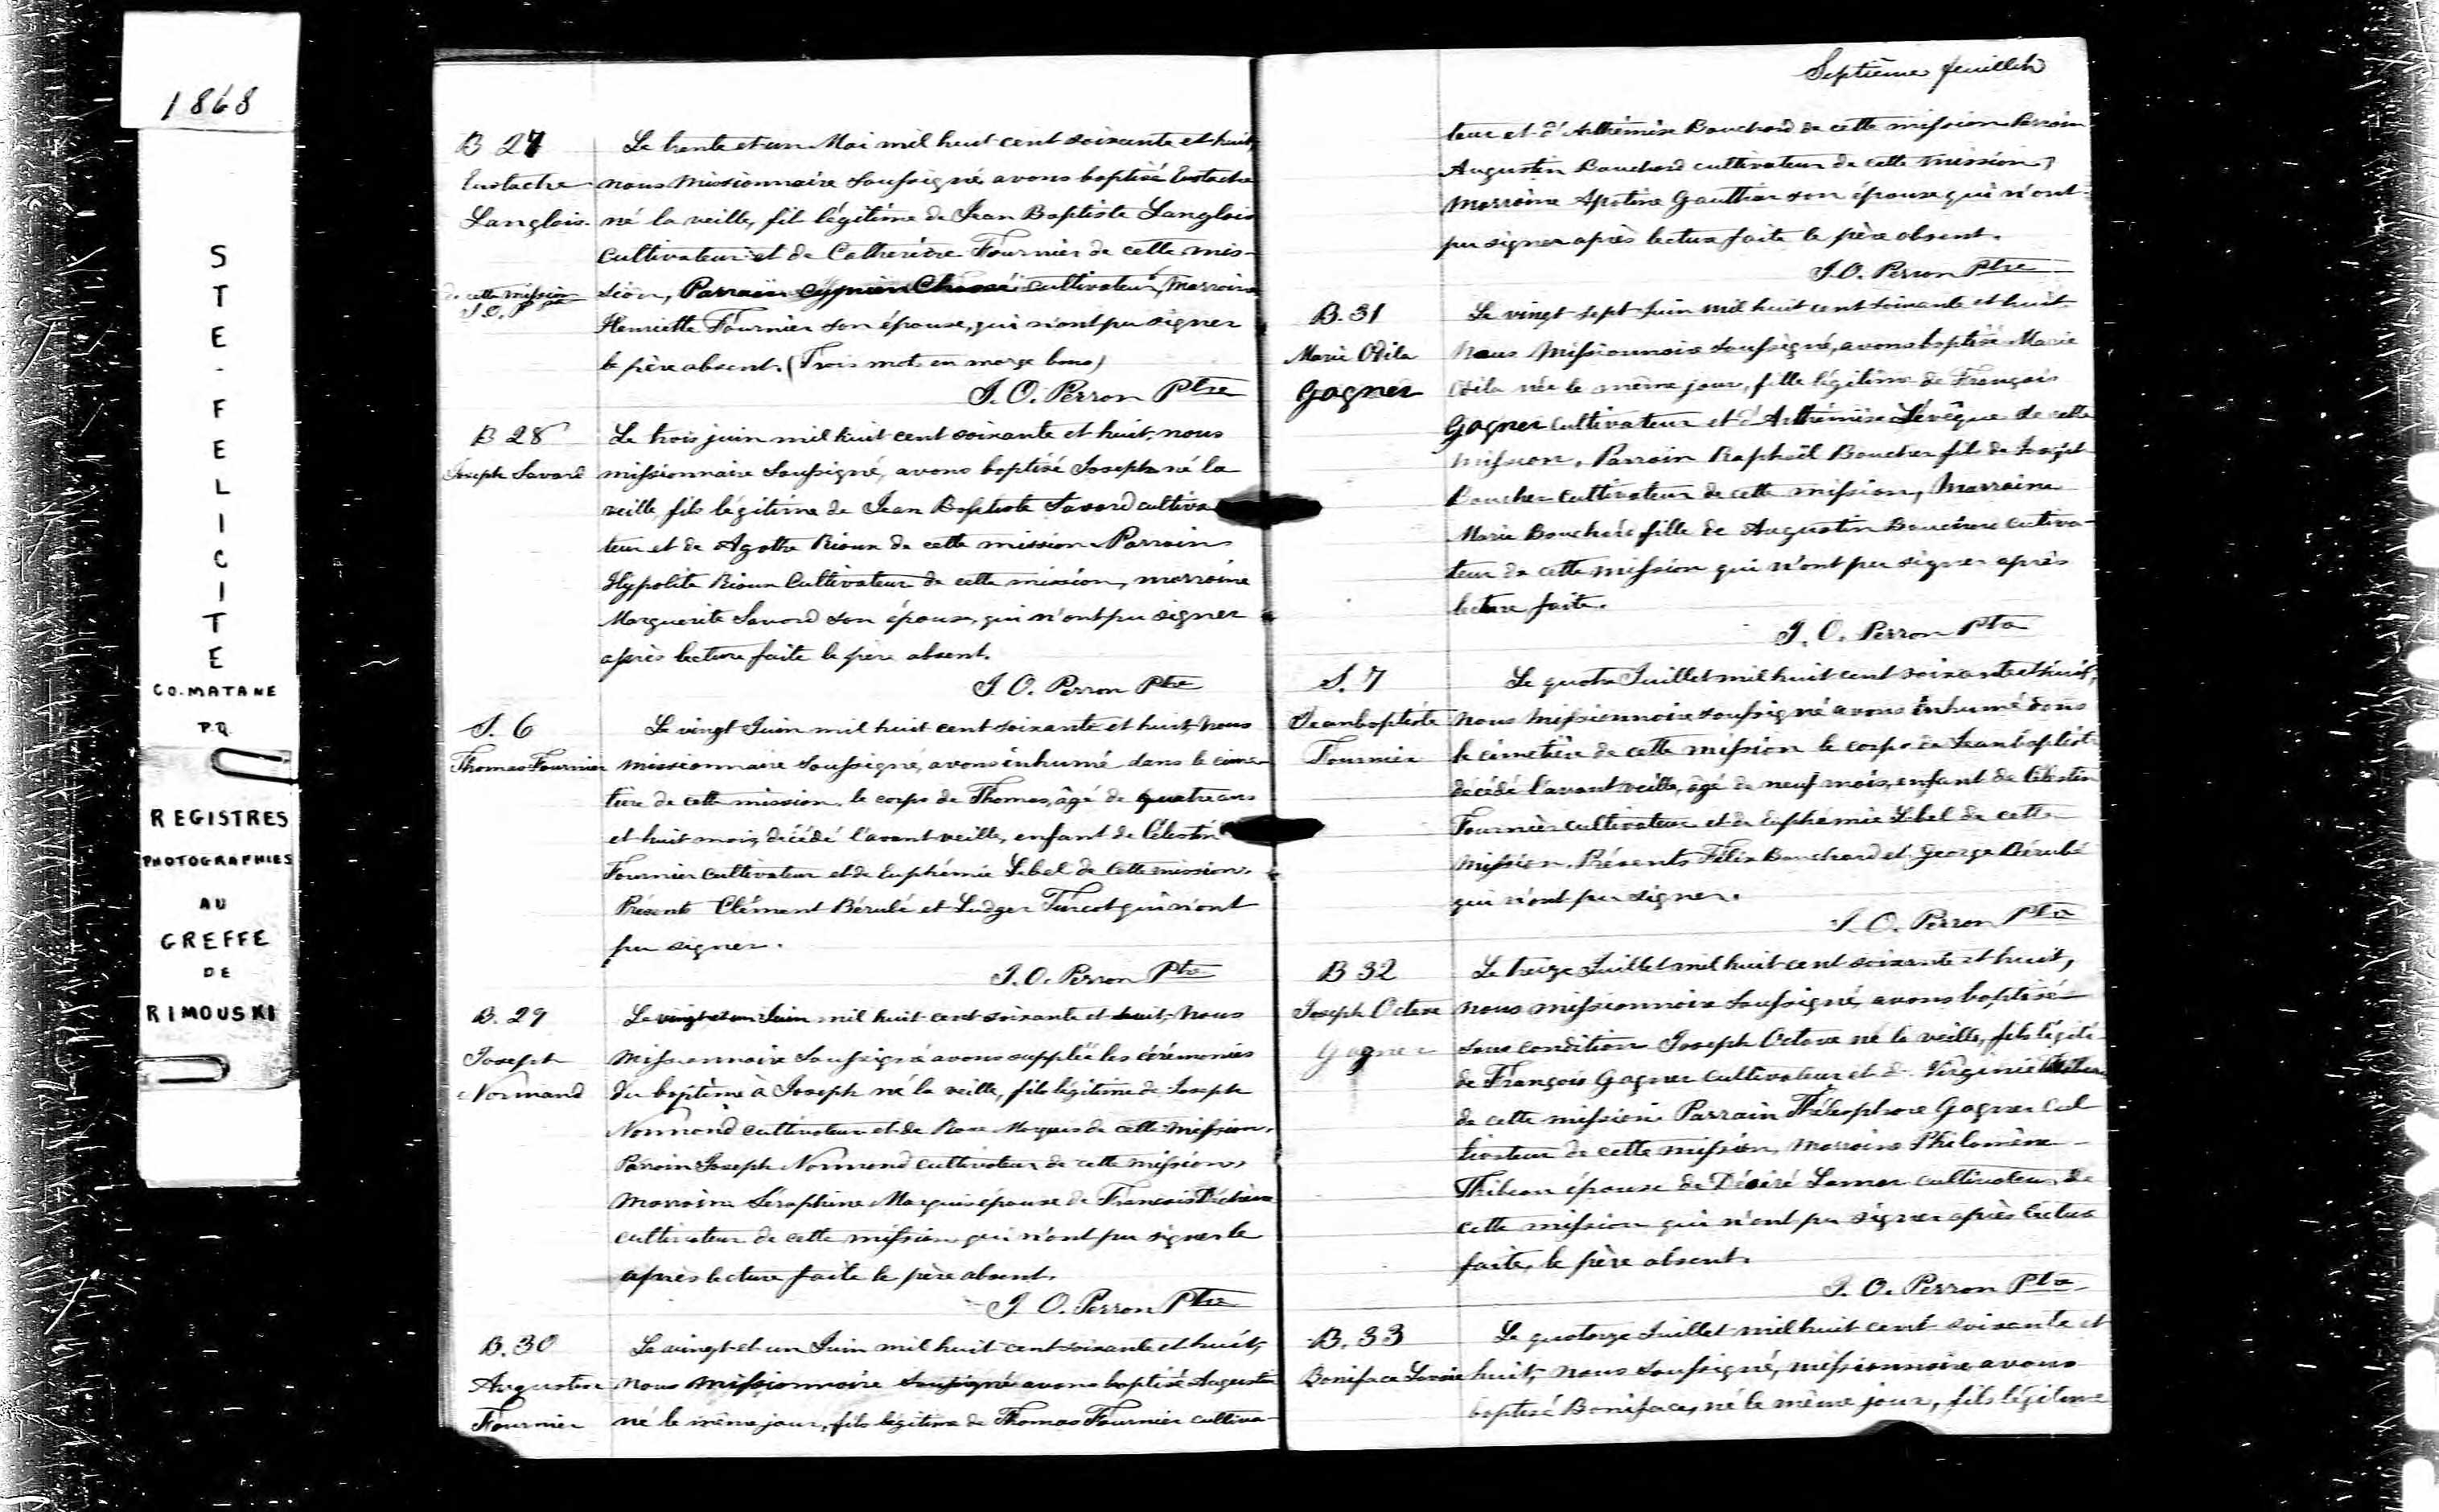 1868
S
T
E
-
F
E
L
I
C
I
T
E
CO. MATANE
P.Q.
REGISTRES
PHOTOGRAPHIES
AU
GREFFE
DE
RIMOUSKI
B 27
Eustache
Langlois.
de cette mission
J.O.P. ptre
Le trente et un Mai mil huit cent soixante et huit,
nous Missionnaire soussigné, avons baptisé Eustache
né la veille, fils légitime de Jean Baptiste Langlois
Cultivateur et de Catherine Fournier de cette mis-
sion, Parrain Cyprien cultivateur, marraine
Henriette Fournier son épouse, qui n'ont pu signer
le père absent. (Trois mots en marge bons)
J. O. Perron Ptre
B 28
Joseph Savard
Le trois juin mil huit cent soixante et huit, nous
missionnaire soussigné, avons baptisé Joseph né la
veille, fils légitime de Jean Baptiste Savard cultiva
teur et de Agathe Rioux de cette mission Parrain
Hypolite Rioux Cultivateur de cette mission, marraine
Marguerite Savard son épouse, qui n'ont pu signer
après lecture faite le père absent.
J. O. Perron Ptre
S. 6
Thomas Fournier
Le vingt Juin mil huit cent soixante et huit, nous
missionnaire soussigné, avons inhumé dans le cime-
tière de cette mission, le corps de Thomas, âgé de quatre ans
et huit mois, décédé l'avant veille, enfant de Célestin
Fournier cultivateur et de Euphémie Lebel de cette mission.
Présents Clément Bérubé et Ludger Turcot qui n'ont
pu signer.
J. O. Perron Ptre
B. 29
Joseph
Normand
Le vingt et un Juin mil huit cent soixante et huit, nous
Missionnaire Soussigné avons supplée les cérémonies
du baptême à Joseph né la veille, fils légitime de Joseph
Normand cultivateur et de Rose Marquis de cette mission.
Parrain Joseph Normand cultivateur de cette mission,
Marraine Séraphine Marquis épouse de François
cultivateur de cette mission qui n'ont pu signer le
après lecture faite le père absent.
J. O. Perron Ptre
B. 30
Augustin
Fournier
Le vingt et un Juin mil huit cent soixante et huit,
nous missionnaire soussigné avons baptisé Augustin
né le même jour, fils légitime de Thomas Fournier cultiva-
Septième feuillet
teur et d'Arthémise Bouchard de cette mission Parrain
Augustin Bouchard cultivateur de cette mission,
Marraine Apoline Gauthier son épouse qui n'ont
pu signer après lecture faite le père absent.
J. O. Perron Ptre
B. 31
Marie Odila
Gagner
Le vingt sept Juin mil huit cent soixante et huit
Nous Missionnaire soussigné, avons baptisé Marie
Odila née le même jour, fille légitime de François
Gagner Cultivateur et d'Arthémise Lévêque de cette
mission, Parrain Raphaël Boucher fils de Joseph
Boucher Cultivateur de cette mission, Marraine
Marie Bouchard fille de Augustin Bouchard cultiva-
teur de cette mission qui n'ont pu signer après
lecture faite.
J. O. Perron Ptre
S. 7
Jeanbaptiste
Fournier
Le quatre Juillet mil huit cent soixante et huit,
nous Missionnaire soussigné avons inhumé dans
le cimetière de cette mission le corps de Jeanbaptiste
décédé l'avant veille, âgé de neuf mois, enfant de Célestin
Fournier cultivateur et de Euphémie Lebel de cette
mission. Présents Félix Bouchard et George Bérubé
qui n'ont pu signer.
J. O. Perron Ptre
B 32
Joseph Octave
Gagner
Le treize Juillet mil huit cent soixante et huit,
nous missionnaire soussigné, avons baptisé
sous condition Joseph Octave né la veille, fils légiti-
de François Gagner Cultivateur et de Virginie
de cette mission Parrain Théléophore Gagner Cul
tivateur de cette mission, marraine Philomène
Thibeau épouse de Désiré Lamer cultivateur de
cette mission qui n'ont pu signer après lecture
faite, le père absent.
J. O. Perron Ptre
B. 33
Boniface Lavoie
Le quatorze Juillet mil huit cent soixante et
huit, nous soussigné, missionnaire avons
baptisé Boniface, né le même jour, fils légitime